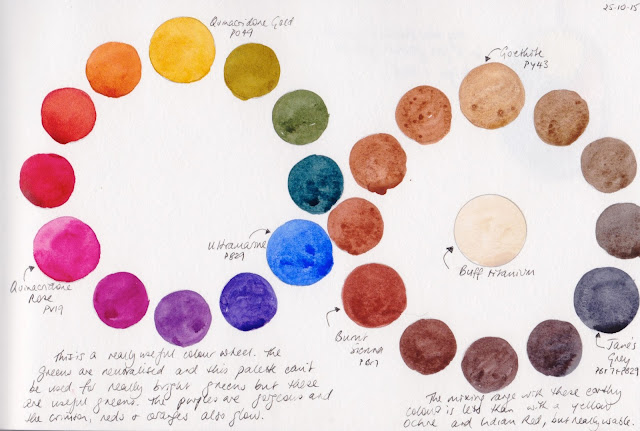 25-10-15
Quinacridone Gold
PO49
Goethite
PY43
Ultramarine
PB29
Buff titanium
Quinacridone
Rose
PV19
Burnt
Sienna
PBr7
Jane's
Grey
PBr7+PB29
This is a really useful colour wheel. The
greens are neutralised and this palette can't
be used for really bright greens but these
are useful greens. The purples are gorgeous and
the crimson, reds & oranges also glow.
The mixing range with these earthy
colours is less than with a yellow
ochre and Indian Red, but really usable.